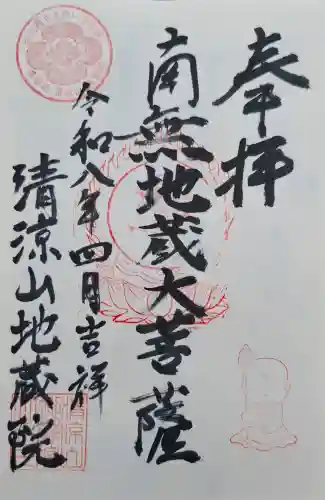 奉拝
南無地蔵大菩薩
令和八年四月吉祥
清涼山地蔵院